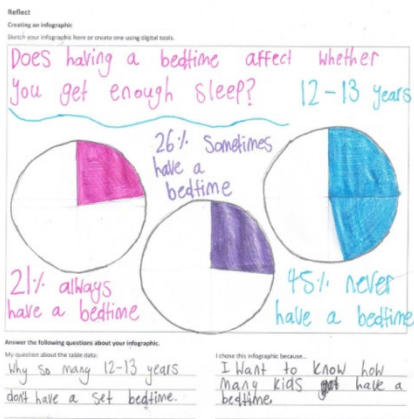 Reflect
Creating an infographic
Sketch your infographic here or create one using digital tools.
Does having a bedtime affect whether
you get enough sleep?
12-13 years
26% Sometimes
have a
bedtime
21% always
have a bedtime
45% never
have a bedtime
Answer the following questions about your infographic.
My question about the table data:
Why so many 12-13 years
dont have a set bedtime.
I chose this infographic because...
I Want to know how
many kids get have a
bedtime.